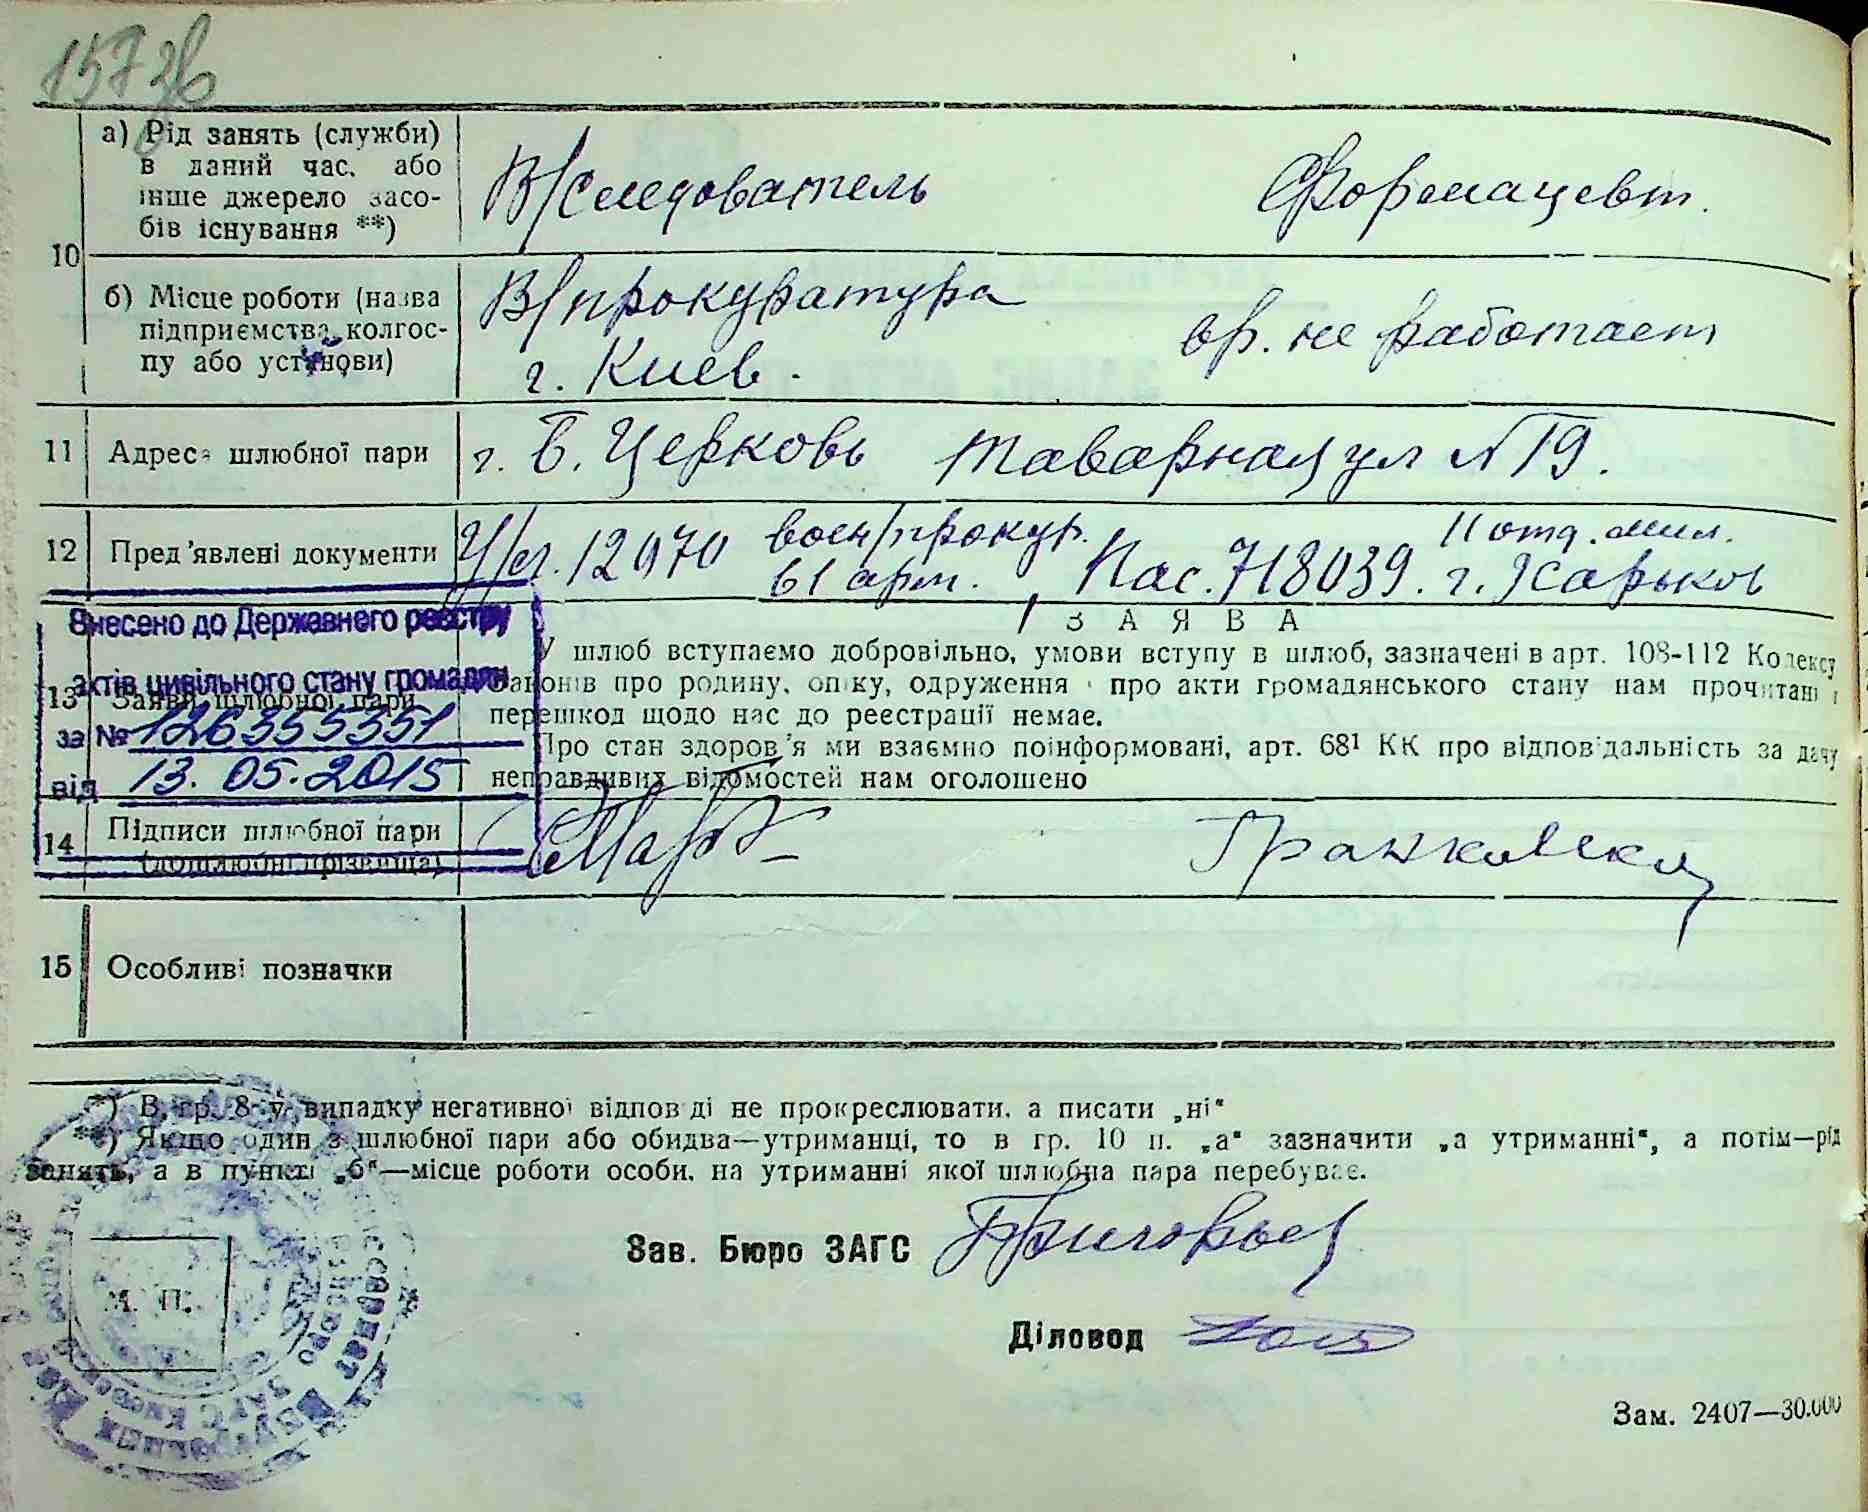 157 зв
10
а) Рід занять (служби)
в даний час, або
інше джерело засо-
бів існування **)
В/следователь
Формацевт.
б) Місце роботи (назва
підприємства, колгос-
пу або установи)
В/прокуратура
г. Киев.
вр. не работает
11 Адреса шлюбної пари г. Б. Церковь таварная ул № 19.
12 Пред'явлені документи У/л. 12970 воен/прокур. 61 арм., Пас. 718039. 11 отд. мил. г. Харьков
Внесено до Державного реєстру
актів цивільного стану громадян
за № 126355351
від 13. 05. 2015
13 Заяви шлюбної пари
ЗАЯВА
У шлюб вступаємо добровільно, умови вступу в шлюб, зазначені в арт. 108-112 Кодексу
Законів про родину, опіку, одруження і про акти громадянського стану нам прочитані і
перешкод щодо нас до реєстрації немає.
Про стан здоров'я ми взаємно поінформовані, арт. 68¹ КК про відповідальність за дачу
неправдивих відомостей нам оголошено
14 Підписи шлюбної пари
(дошлюбні прізвища)
15 Особливі позначки
*) В гр. 8 у випадку негативної відповіді не прокреслювати, а писати „ні“
**) Якщо один з шлюбної пари або обидва—утриманці, то в гр. 10 п. „а“ зазначити „а утриманні“, а потім—рід
занять, а в пункті „б“—місце роботи особи, на утриманні якої шлюбна пара перебуває.
Зав. Бюро ЗАГС
Діловод
М. П.
Зам. 2407—30.000